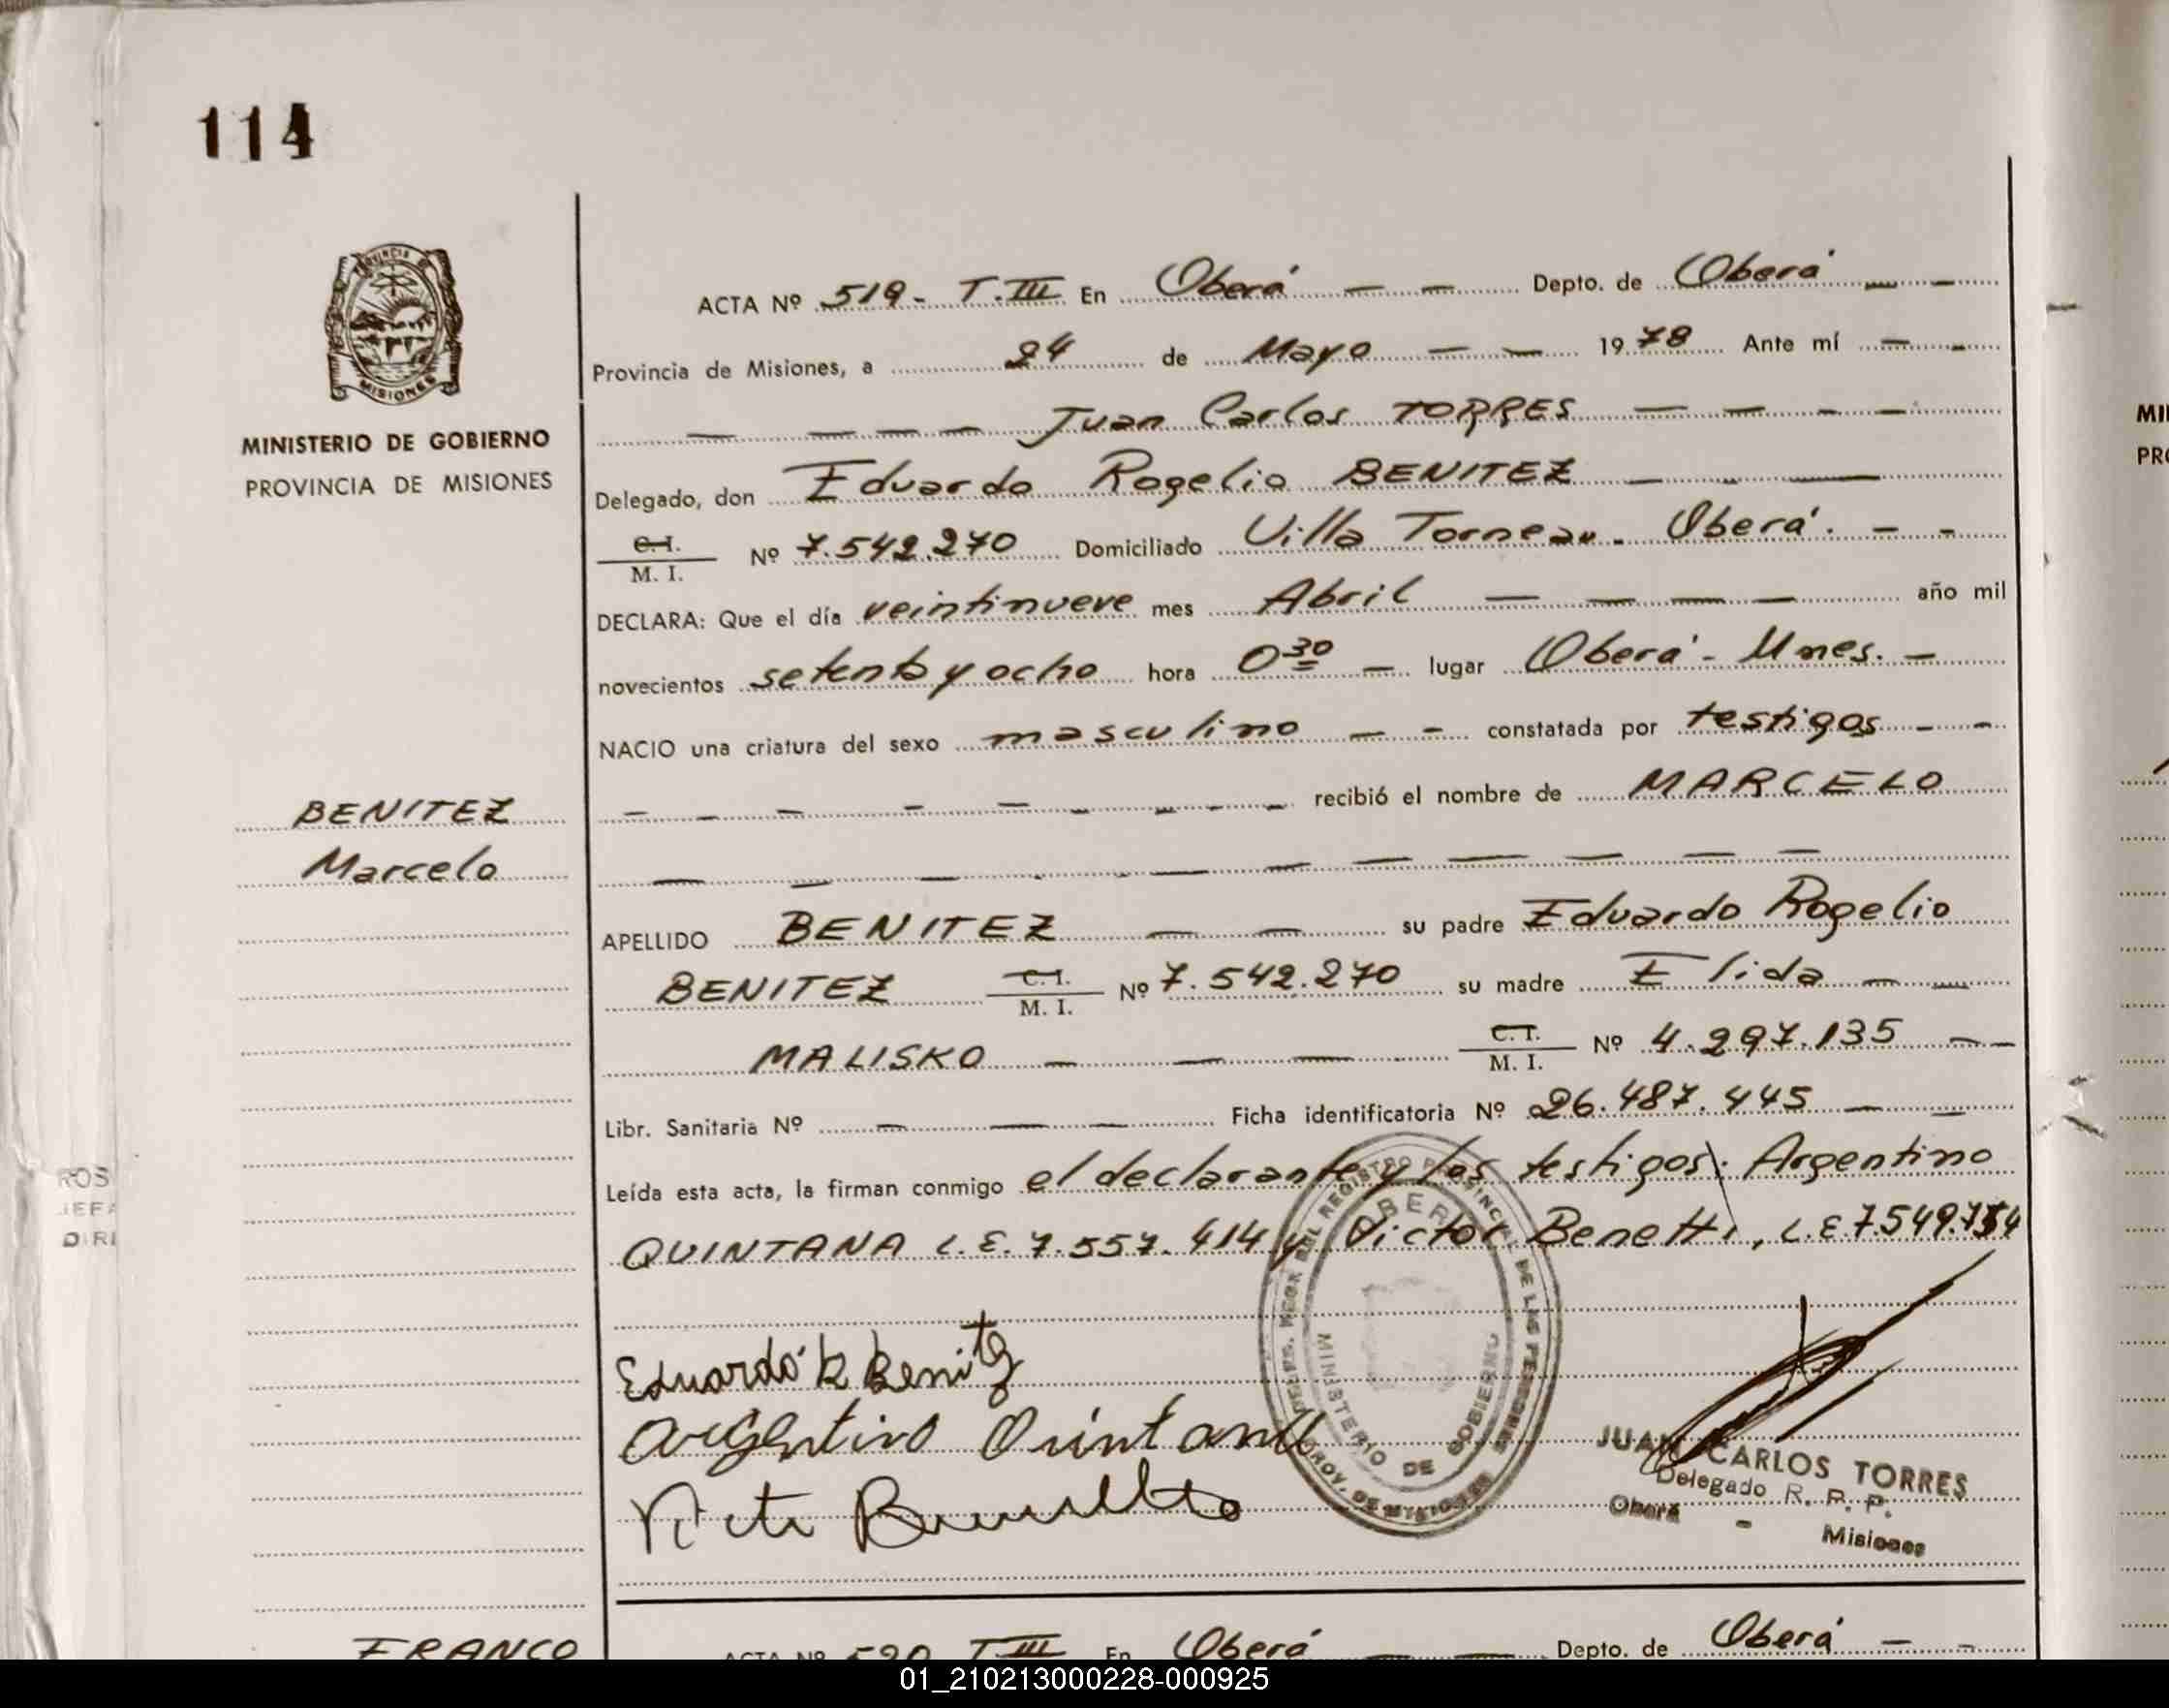 114
PROVINCIA DE
MISIONES
MINISTERIO DE GOBIERNO
PROVINCIA DE MISIONES
BENITEZ
Marcelo
ACTA Nº 519- T.III En Oberá — — Depto. de Oberá — —
Provincia de Misiones, a 24 de Mayo — — 1978 Ante mí — —
— — — — Juan Carlos TORRES — — — —
Delegado, don Eduardo Rogelio BENITEZ — - —
C. I.
M. I. Nº 7.542.270 Domiciliado Villa Torneau - Oberá. - -
DECLARA: Que el día veintinueve mes Abril — — — — año mil
novecientos setenta y ocho hora 0 30 — lugar Oberá - Mnes. —
NACIO una criatura del sexo masculino — - constatada por testigos - -
— — — — — — — — — recibió el nombre de MARCELO
— — — - - — — — — — — —
APELLIDO BENITEZ — — su padre Eduardo Rogelio
BENITEZ C. I.
M. I. Nº 7.542.270 su madre Elida — —
MALISKO — — — C. I.
M. I. Nº 4.297.135 — —
Libr. Sanitaria Nº — — — Ficha identificatoria Nº 26.487.445 — —
Leída esta acta, la firman conmigo el declarante y los testigos: Argentino
QUINTANA L.E. 7.557.414 y Victor Benetti, L.E 7.549.754
Eduardo R Benitez
Argentino Quintana
DEL REGISTRO PROVINCIAL DE LAS PERSONAS
PROV. DE MISIONES
OBERA
MINISTERIO DE GOBIERNO
JUAN CARLOS TORRES
Delegado R. P. P.
Oberá - Misiones
FRANCO
ACTA Nº 520 T III En Oberá — — Depto. de Oberá — -
ROS
JEFA
DIRE
MI
PRO
01_210213000228-000925